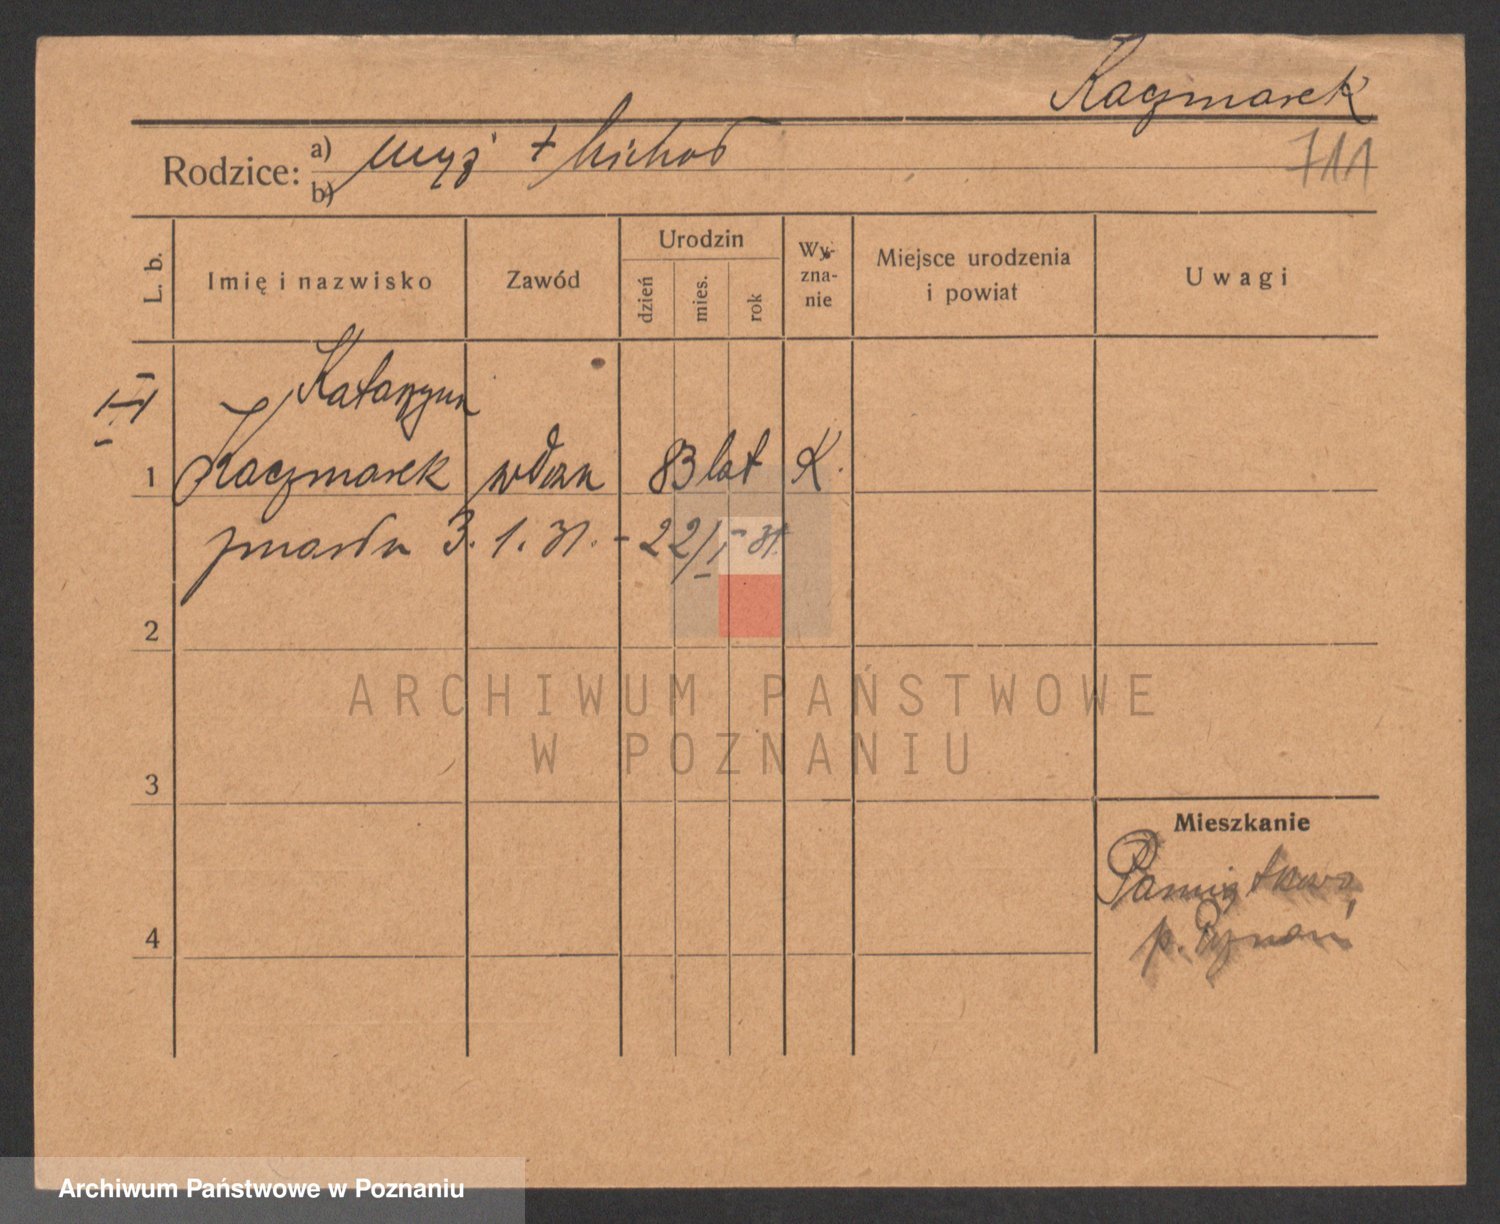 Kaczmarek
Rodzice: a) mąż + Michał
b)
711
L. b.
Imię i nazwisko
Zawód
Urodzin
dzień
mies.
rok
Wy-
zna-
nie
Miejsce urodzenia
i powiat
Uwagi
Katarzyna
1 Kaczmarek wdowa 83 lat K.
zmarła 3. 1. 31. - 22/I - 31.
2
ARCHIWUM PAŃSTWOWE
W POZNANIU
3
Mieszkanie
Pamiątkowa
p. Poznań
4
Archiwum Państwowe w Poznaniu